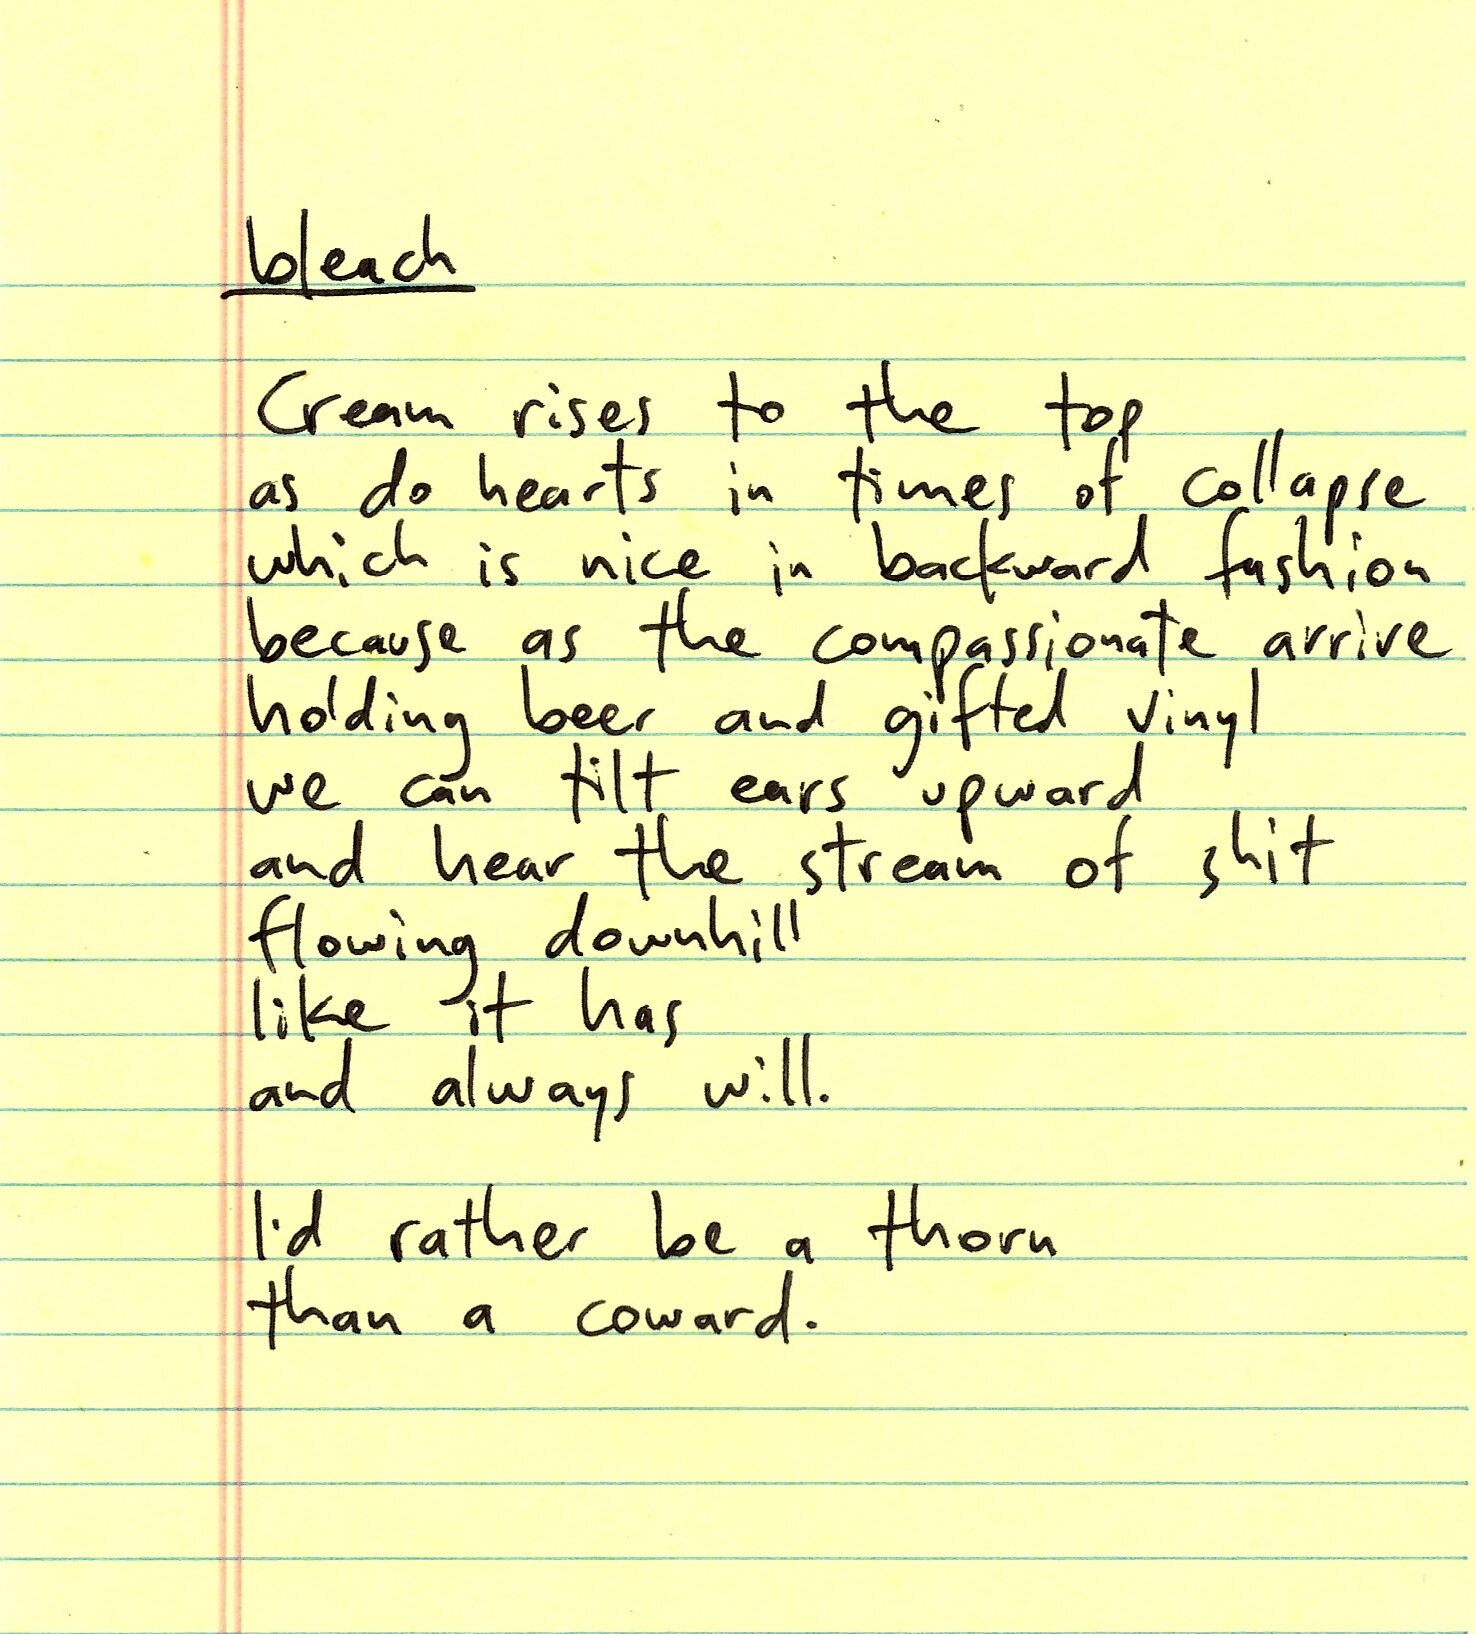 bleach
Cream rises to the top
as do hearts in times of collapse
which is nice in backward fashion
because as the compassionate arrive
holding beer and gifted vinyl
we can tilt ears upward
and hear the stream of shit
flowing downhill
like it has
and always will.
I'd rather be a thorn
than a coward.